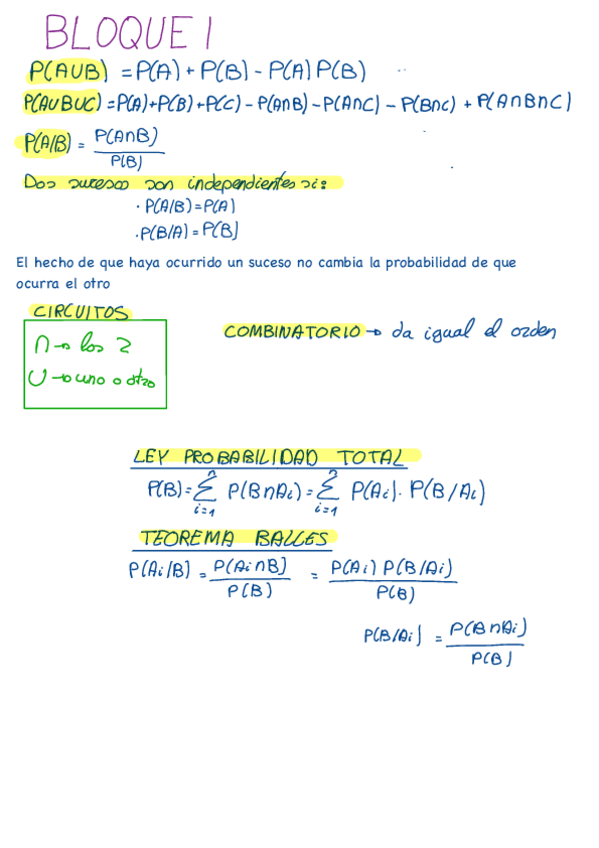 BLOQUE 1
P(AUB) = P(A) + P(B) - P(A) P(B)
P(AUBUC) = P(A)+P(B)+P(C) - P(A∩B) - P(A∩C) - P(B∩C) + P(A∩B∩C)
P(A/B) = P(A∩B) / P(B)
Dos sucesos son independientes si:
· P(A/B) = P(A)
· P(B/A) = P(B)
El hecho de que haya ocurrido un suceso no cambia la probabilidad de que
ocurra el otro
CIRCUITOS
∩ → los 2
U → uno o otro
COMBINATORIO → da igual el orden
LEY PROBABILIDAD TOTAL
P(B) = ∑ i=1 n P(B∩Ai) = ∑ i=1 n P(Ai) · P(B/Ai)
TEOREMA BALLES
P(Ai/B) = P(Ai∩B) / P(B) = P(Ai) P(B/Ai) / P(B)
P(B/Ai) = P(B∩Ai) / P(B)